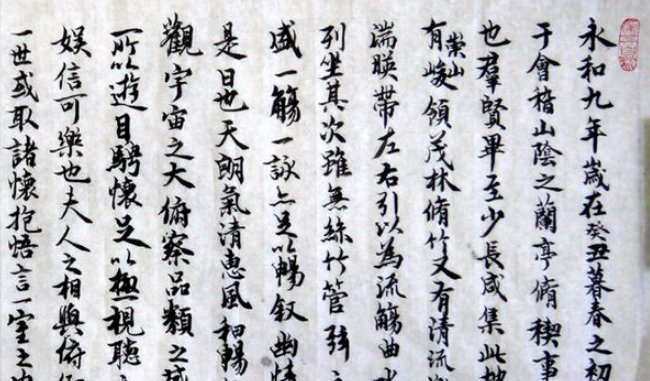 永和九年歲在癸丑暮春之初
于會稽山陰之蘭亭脩稧事
也羣賢畢至少長咸集此地
有崇山峻領茂林脩竹又有清流
湍暎帶左右引以為流觴曲水
列坐其次雖無絲竹管弦之
盛一觴一詠亦足以暢叙幽情
是日也天朗氣清惠風和暢
觀宇宙之大俯察品類之盛
所以遊目騁懷足以極視聽之
娛信可樂也夫人之相與俯仰
一世或取諸懷抱悟言一室之內